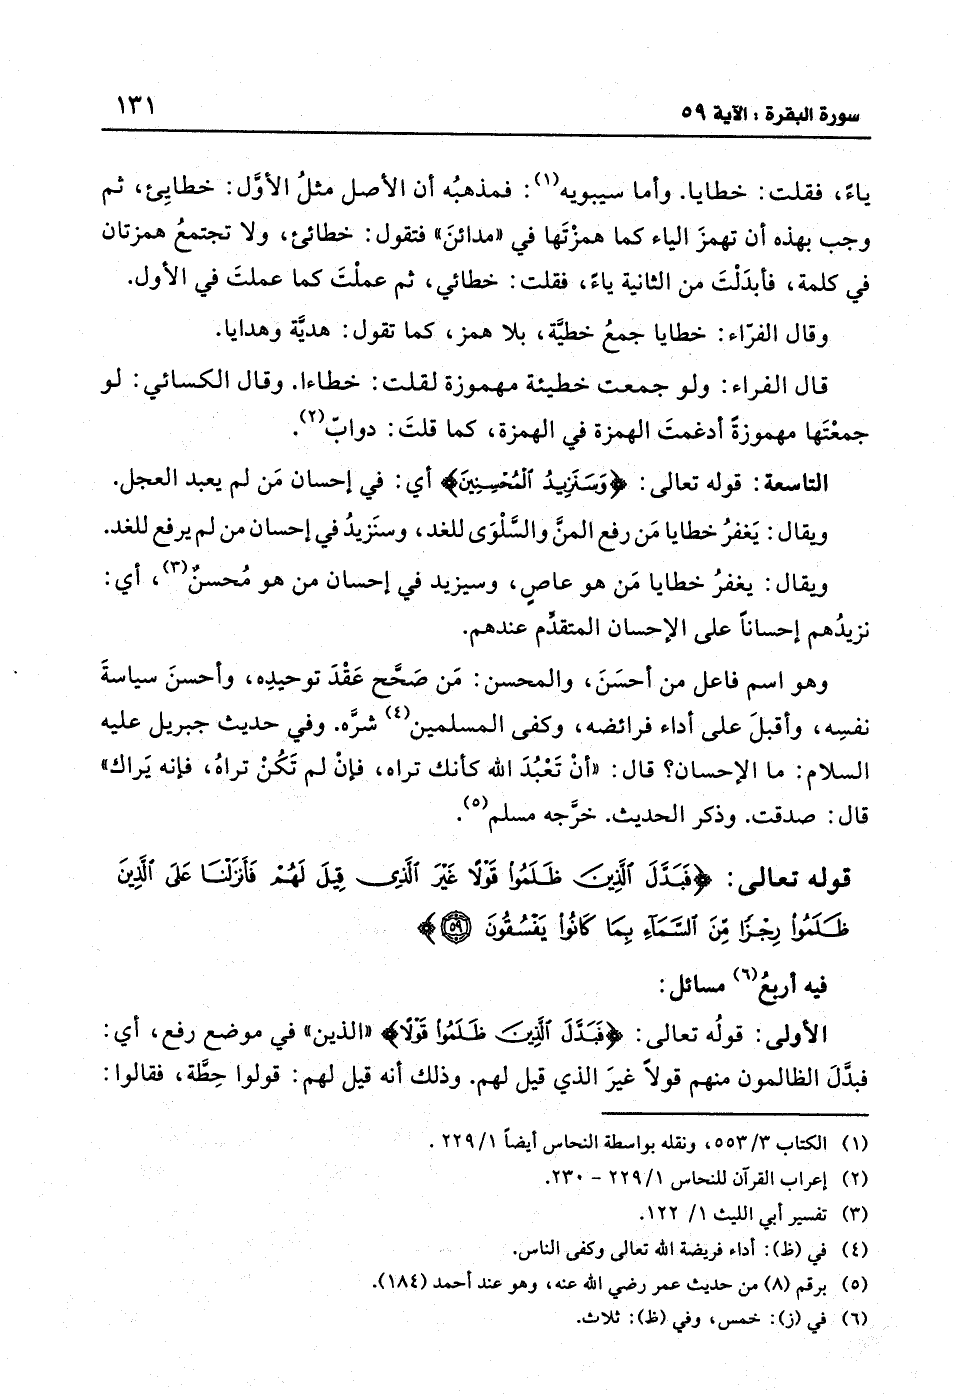 سورة البقرة : الآية ٥٩
١٣١
ياءً، فقلت: خطايا. وأما سيبويه(١): فمذهبُه أن الأصل مثلُ الأوَّل: خطايِئ، ثم
وجب بهذه أن تهمزَ الياء كما همزْتَها في «مدائنَ» فتقول: خطائئ، ولا تجتمعُ همزتان
في كلمة، فأبدَلْتَ من الثانية ياءً، فقلت: خطائي، ثم عملْتَ كما عملتَ في الأول.
وقال الفرّاء: خطايا جمعُ خطيَّة، بلا همز، كما تقول: هديَّة وهدايا.
قال الفراء: ولو جمعت خطيئة مهموزة لقلت: خطاءا. وقال الكسائي: لو
جمعْتَها مهموزةً أدغمتَ الهمزة في الهمزة، كما قلتَ: دوابّ(٢).
التاسعة: قوله تعالى: ﴿وَسَنَزِيدُ ٱلْمُحْسِنِينَ﴾ أي: في إحسان مَن لم يعبد العجل.
ويقال: يَغفرُ خطايا مَن رفع المنَّ والسَّلْوَى للغد، وسنَزيدُ في إحسان من لم يرفع للغد.
ويقال: يغفرُ خطايا مَن هو عاصٍ، وسيزيد في إحسان من هو مُحسنٌ(٣)، أي:
نزيدُهم إحساناً على الإحسان المتقدِّم عندهم.
وهو اسم فاعل من أحسَنَ، والمحسن: مَن صَحَّح عَقْدَ توحيدِه، وأحسنَ سياسةَ
نفسِه، وأقبلَ على أداء فرائضه، وكفى المسلمين(٤) شرَّه. وفي حديث جبريل عليه
السلام: ما الإحسان؟ قال: «أنْ تَعْبُدَ الله كأنك تراه، فإنْ لم تَكُنْ تراهُ، فإنه يَراك»
قال: صدقت. وذكر الحديث. خرَّجه مسلم(٥).
قوله تعالى: ﴿فَبَدَّلَ ٱلَّذِينَ ظَلَمُوا۟ قَوْلًا غَيْرَ ٱلَّذِى قِيلَ لَهُمْ فَأَنزَلْنَا عَلَى ٱلَّذِينَ
ظَلَمُوا۟ رِجْزًا مِّنَ ٱلسَّمَآءِ بِمَا كَانُوا۟ يَفْسُقُونَ ٥٩﴾
فيه أربعُ(٦) مسائل:
الأولى: قولُه تعالى: ﴿فَبَدَّلَ ٱلَّذِينَ ظَلَمُوا۟ قَوْلًا﴾ «الذين» في موضع رفع، أي:
فبدَّلَ الظالمون منهم قولاً غيرَ الذي قيل لهم. وذلك أنه قيل لهم: قولوا حِطَّة، فقالوا:
(١) الكتاب ٥٥٣/٣، ونقله بواسطة النحاس أيضاً ٢٢٩/١ .
(٢) إعراب القرآن للنحاس ٢٢٩/١ - ٢٣٠.
(٣) تفسير أبي الليث ١/ ١٢٢.
(٤) في (ظ): أداء فريضة الله تعالى وكفى الناس.
(٥) برقم (٨) من حديث عمر رضي الله عنه، وهو عند أحمد (١٨٤).
(٦) في (ز): خمس، وفي (ظ): ثلاث.